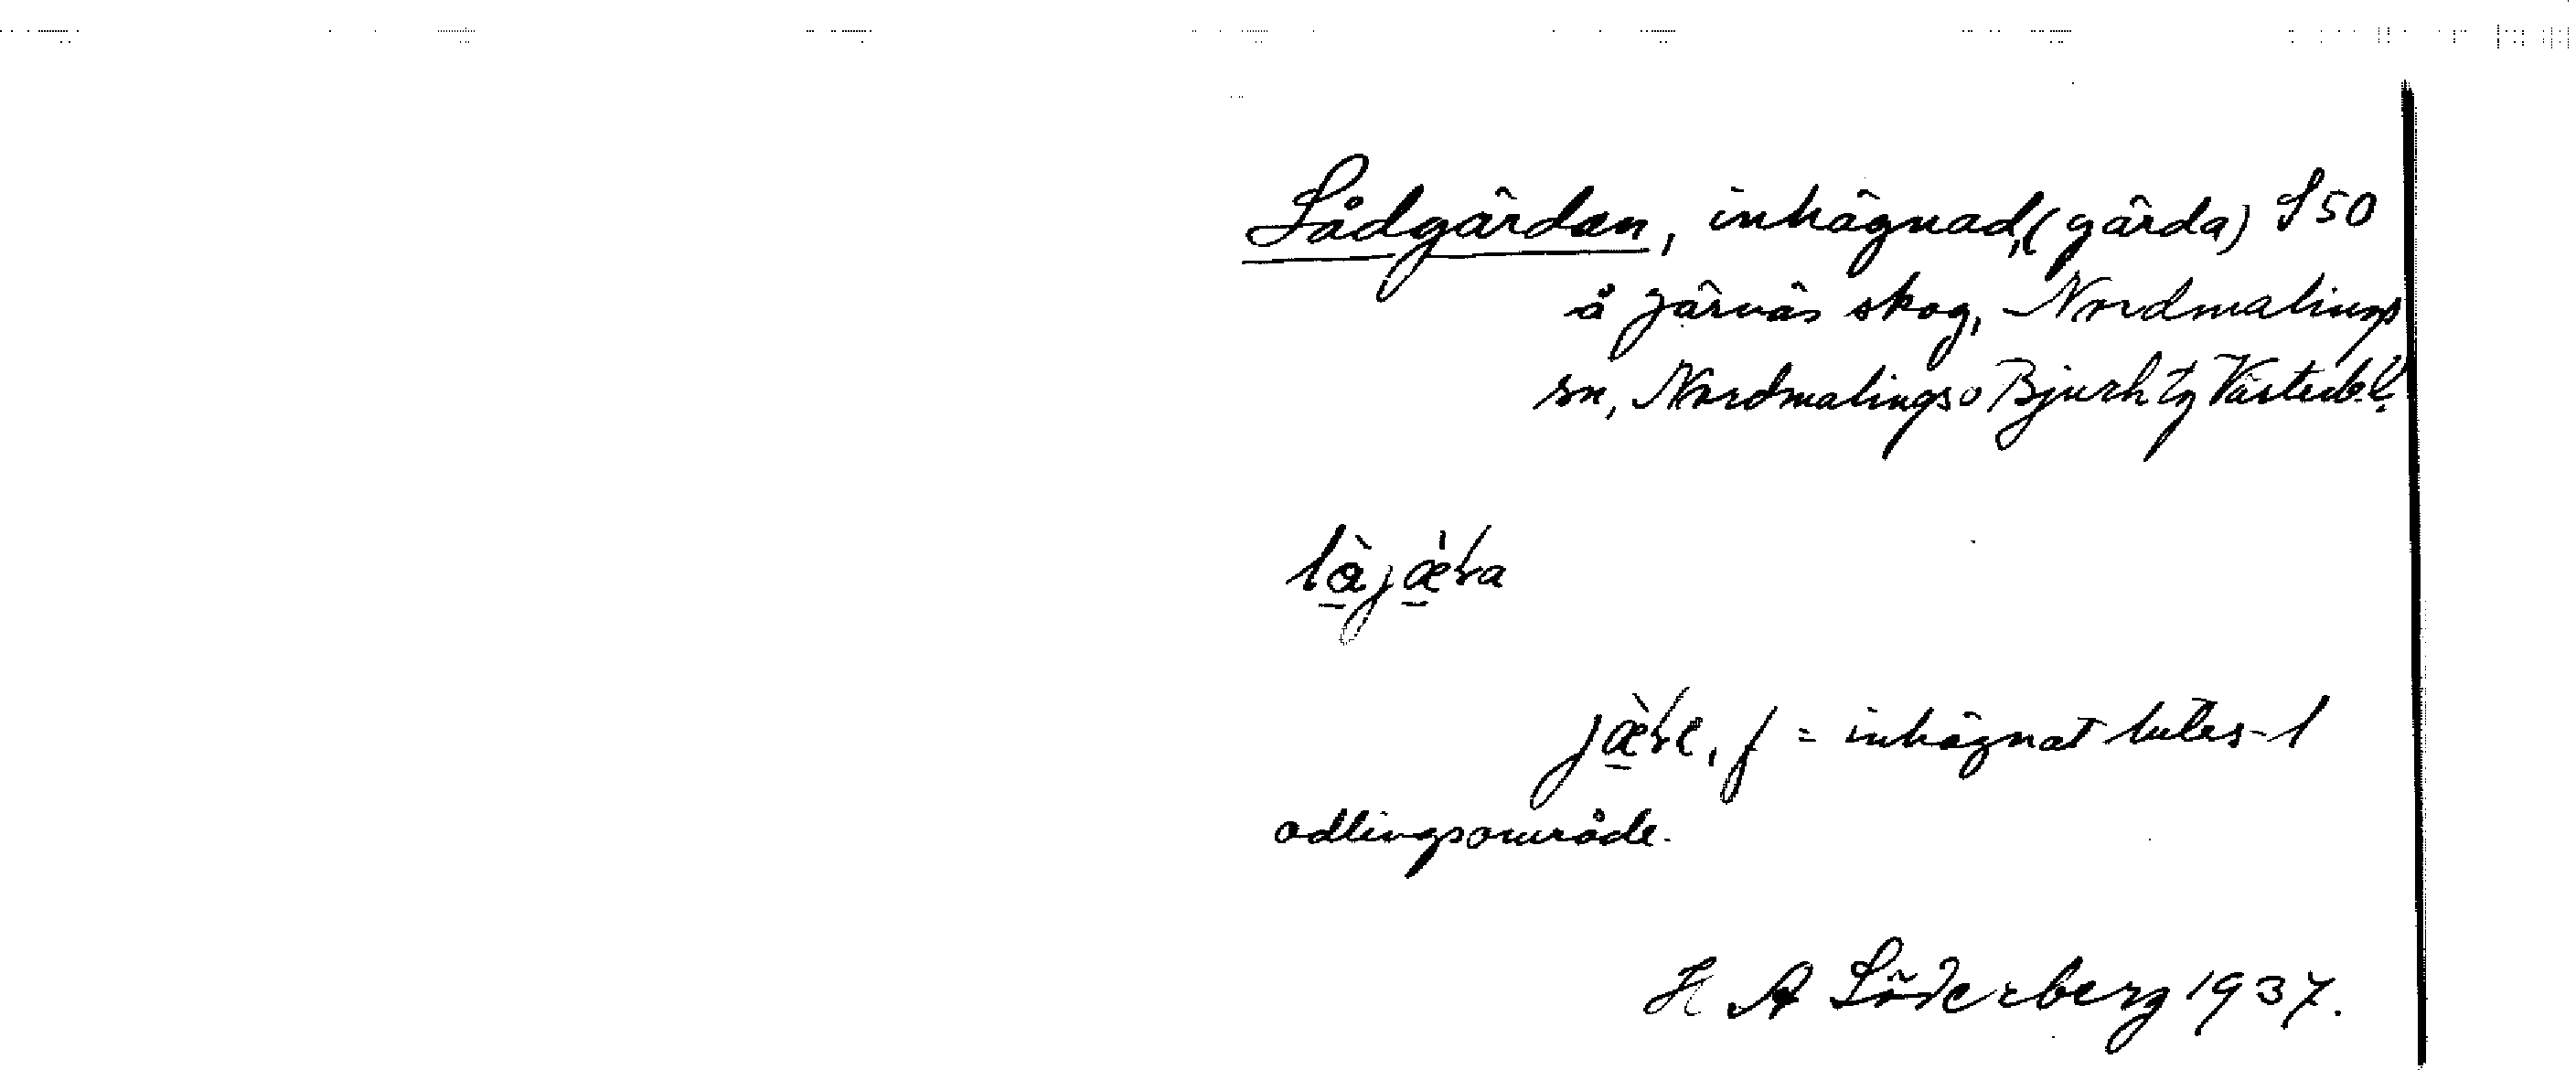 Lådgärdan, inhägnad, (gärda) S50
å Järnäs skog, Nordmalings
sn, Nordmalings o Bjurh tg Västerb. l.
jære, f = inhägnat betes- l
odlingsområde.
H A Söderberg 1937.